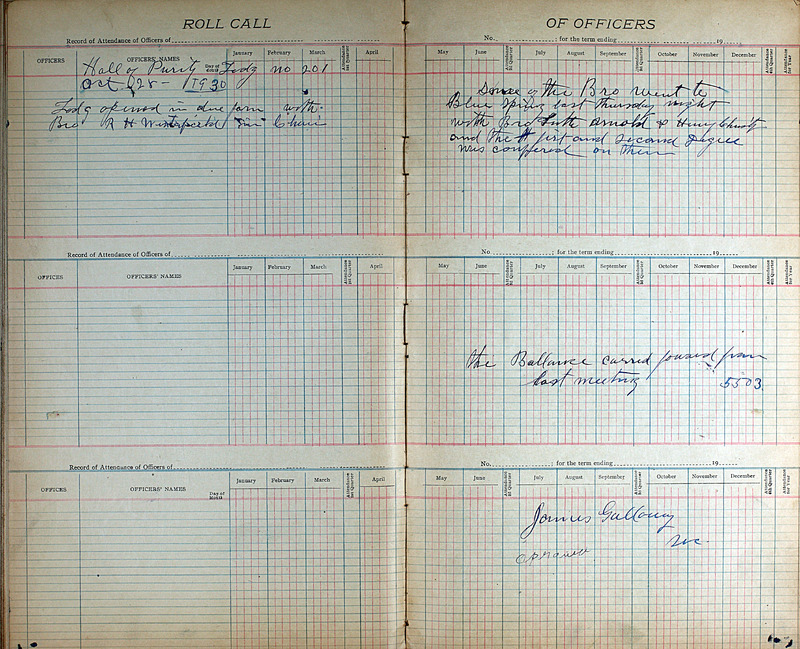 ROLL CALL
Record of Attendance of Officers of
OFFICERS OFFICERS' NAMES Day of Month January February March Attendance 1st Quarter April
Hall of Purity Lodg no 201
Oct 25 - 1930
Lodg opened in due form with
Bro R H in Chair
Record of Attendance of Officers of
OFFICES OFFICERS' NAMES January February March Attendance 1st Quarter April
Record of Attendance of Officers of
OFFICERS OFFICERS' NAMES Day of Month January February March Attendance 1st Quarter April
OF OFFICERS
No. ; for the term ending 19
May June Attendance 2d Quarter July August September Attendance 3d Quarter October November December Attendance 4th Quarter Attendance for Year
Some of the Bro went to
Blue Spring last Thursday night
with Bro Arnold & Henry
and the first and second Degree
was conffered on them
No. ; for the term ending 19
May June Attendance 2d Quarter July August September Attendance 3d Quarter October November December Attendance 4th Quarter Attendance for Year
the Ballance carred from
last meeting 5503
No. ; for the term ending 19
May June Attendance 2d Quarter July August September Attendance 3d Quarter October November December Attendance 4th Quarter Attendance for Year
James Galloway
Sec